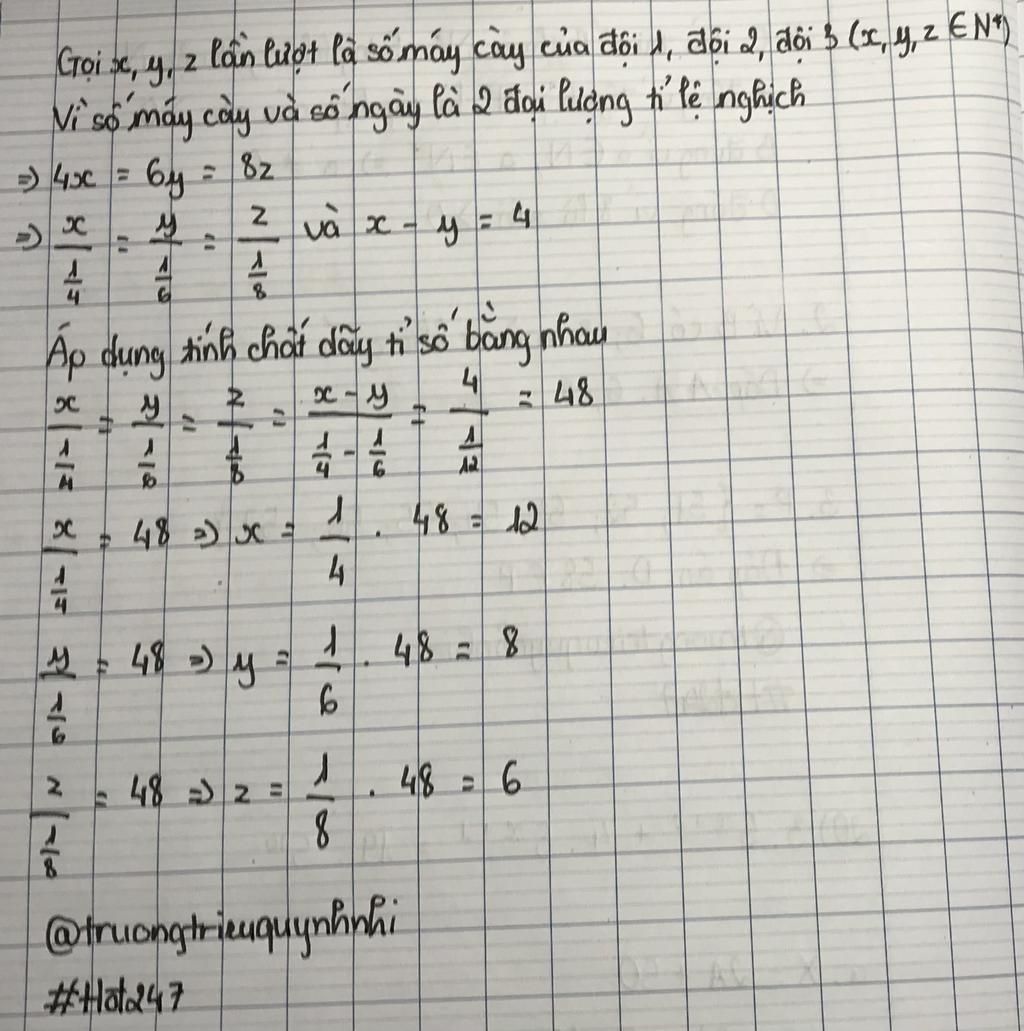 Gọi x, y, z lần lượt là số máy cày của đội 1, đội 2, đội 3 (x, y, z ∈ N*)
Vì số máy cày và số ngày là 2 đại lượng tỉ lệ nghịch
=> 4x = 6y = 8z
=> x/(1/4) = y/(1/6) = z/(1/8) và x - y = 4
Áp dụng tính chất dãy tỉ số bằng nhau
x/(1/4) = y/(1/6) = z/(1/8) = (x - y)/(1/4 - 1/6) = 4/(1/12) = 48
x/(1/4) = 48 => x = 1/4 . 48 = 12
y/(1/6) = 48 => y = 1/6 . 48 = 8
z/(1/8) = 48 => z = 1/8 . 48 = 6
@truongtrieuquynhnhi
#Hod247